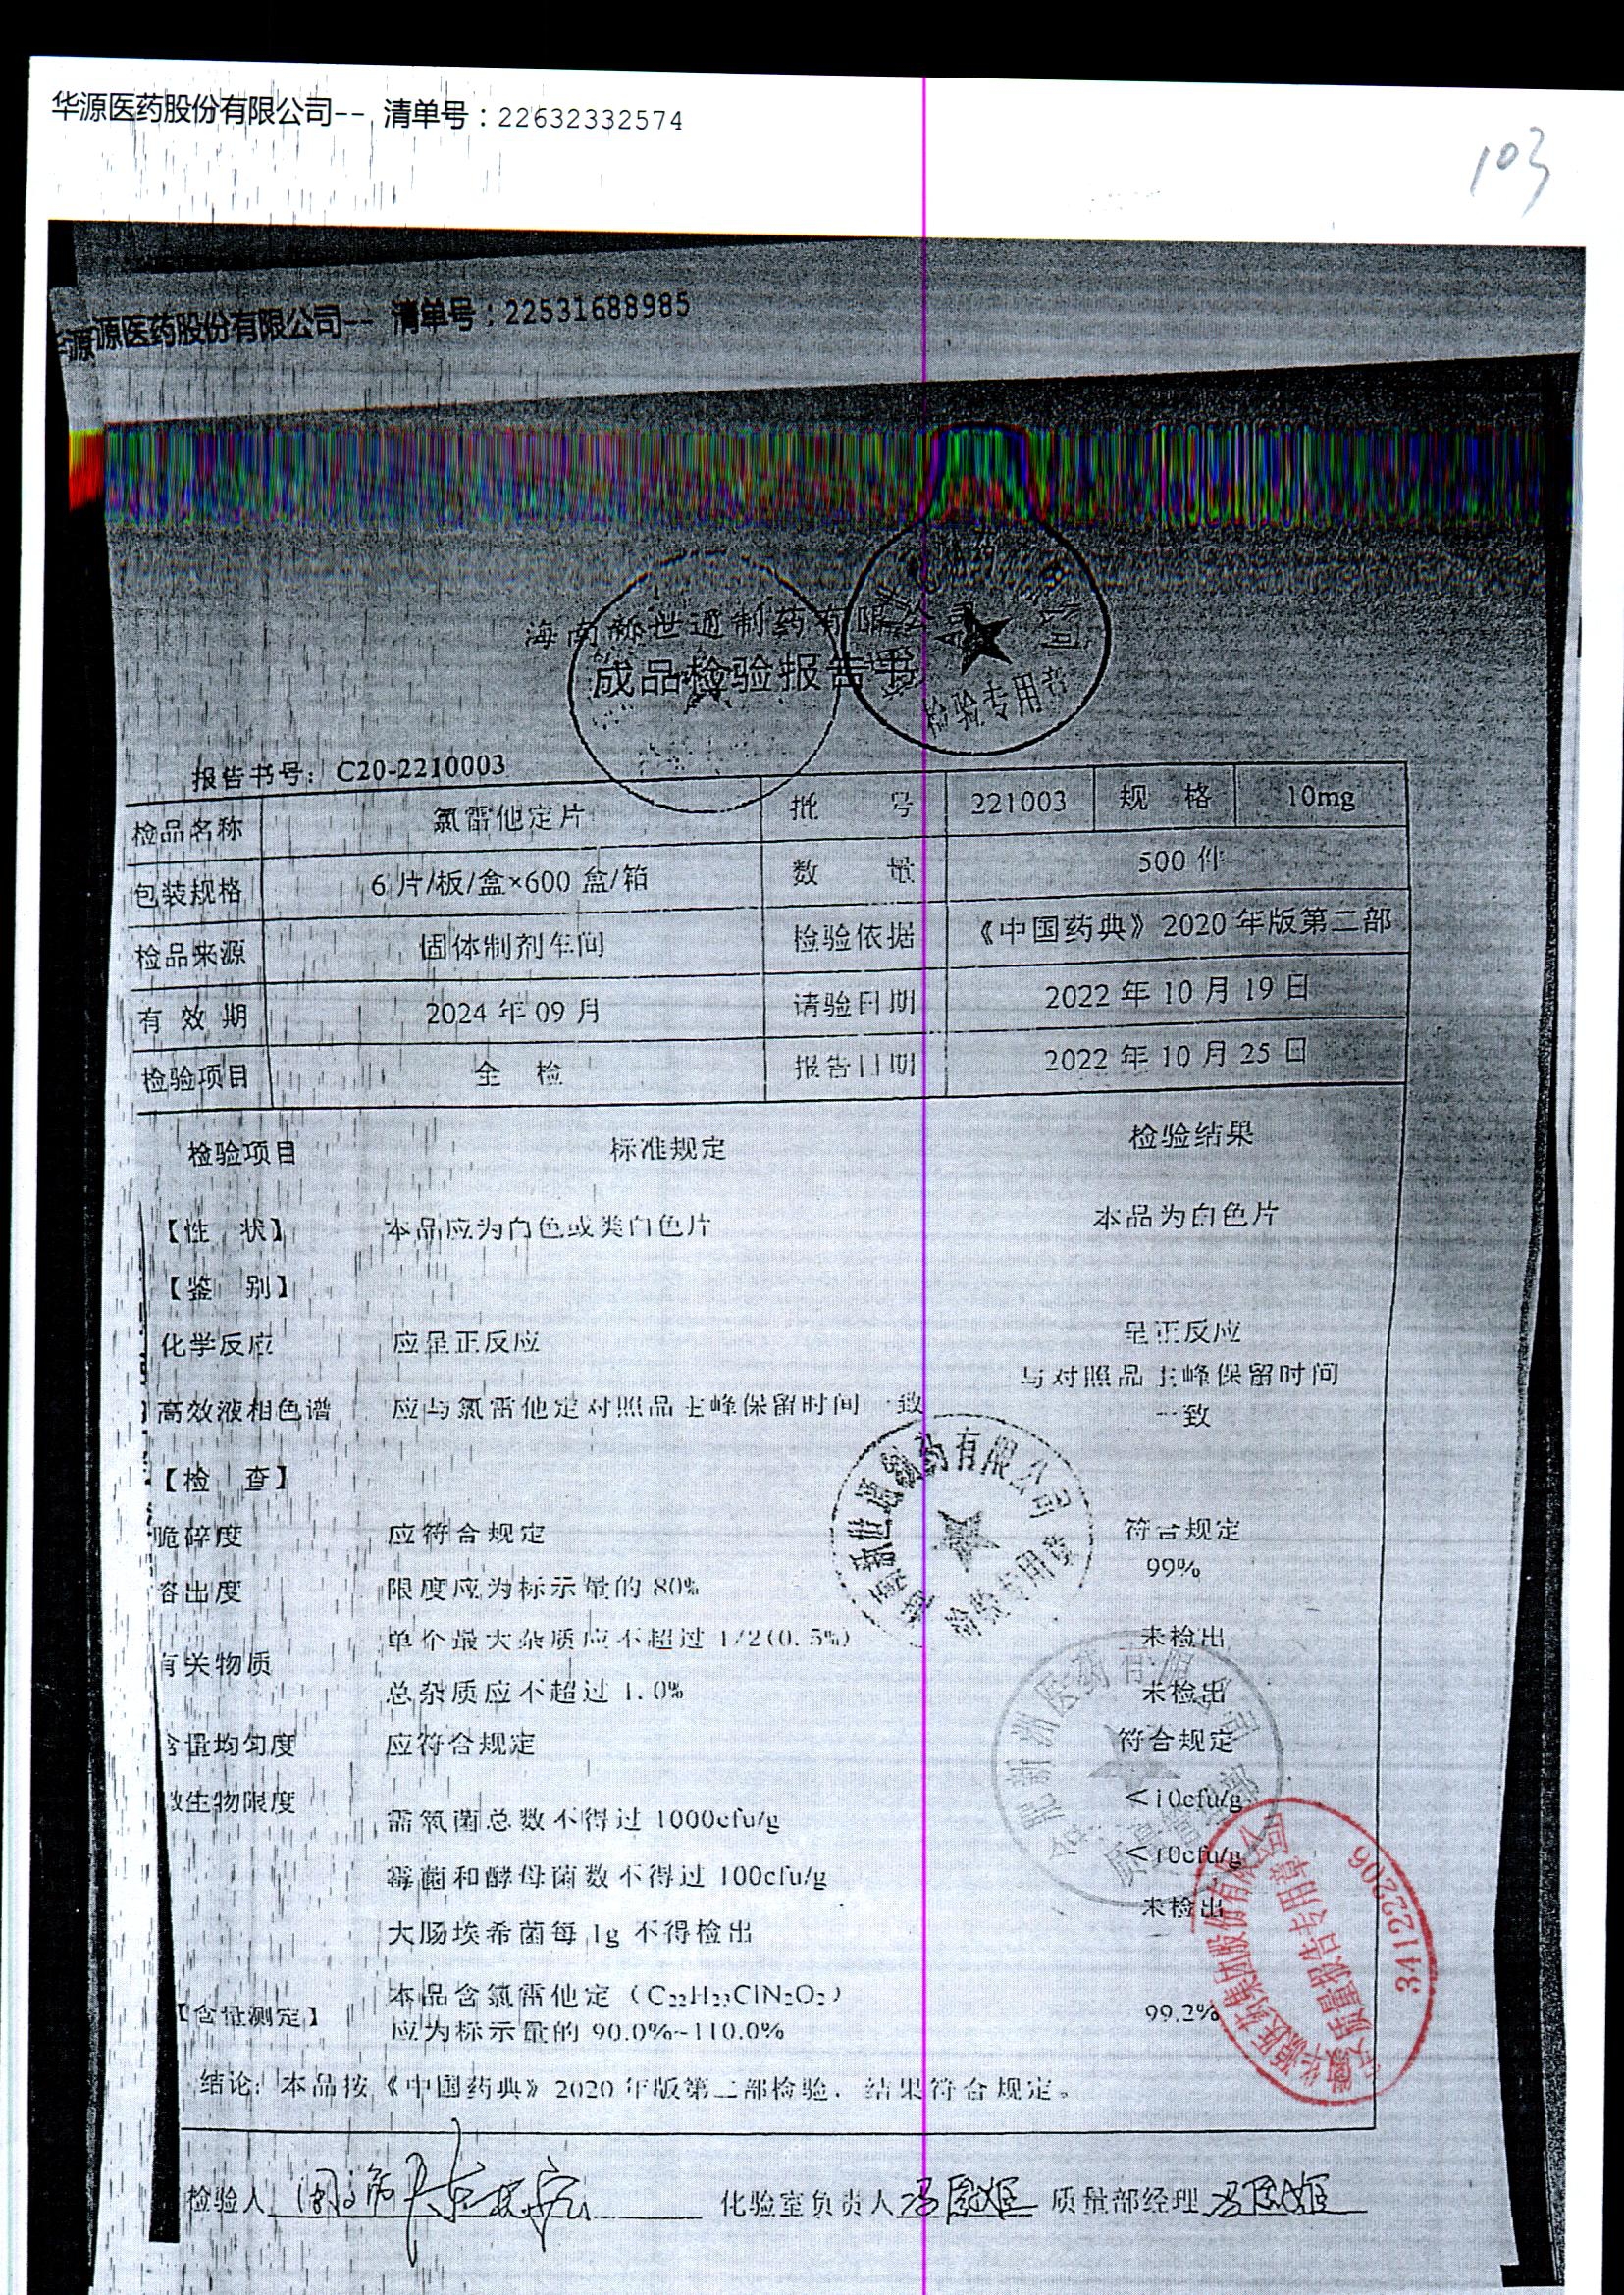 华源医药股份有限公司-- 清单号：22632332574
103
华源源医药股份有限公司-- 清单号：22531688985
海南新世通制药有限公司
成品检验报告书
检验专用章
报告书号： C20-2210003
检品名称 氯雷他定片 批 号 221003 规 格 10mg
包装规格 6 片/板/盒×600 盒/箱 数 量 500 件
检品来源 固体制剂车间 检验依据 《中国药典》2020 年版第二部
有 效 期 2024 年 09 月 请验日期 2022 年 10 月 19 日
检验项目 全 检 报告日期 2022 年 10 月 25 日
检验项目 标准规定 检验结果
【性 状】 本品应为白色或类白色片 本品为白色片
【鉴 别】
化学反应 应呈正反应 呈正反应
高效液相色谱 应与氯雷他定对照品主峰保留时间一致 与对照品主峰保留时间
一致
【检 查】
脆碎度 应符合规定 符合规定
溶出度 限度应为标示量的 80% 99%
有关物质 单个最大杂质应不超过 1/2(0.5%) 未检出
总杂质应不超过 1.0% 未检出
含量均匀度 应符合规定 符合规定
微生物限度
需氧菌总数不得过 1000cfu/g <10cfu/g
霉菌和酵母菌数不得过 100cfu/g <10cfu/g
大肠埃希菌每 1g 不得检出 未检出
【含量测定】 本品含氯雷他定（C₂₂H₂₃ClN₂O₂）
应为标示量的 90.0%~110.0% 99.2%
结论：本品按《中国药典》2020 年版第二部检验，结果符合规定。
海南新世通制药有限公司
检验专用章
合肥新洲医药有限公司
质量管理部
34122206
检验人 化验室负责人 质量部经理